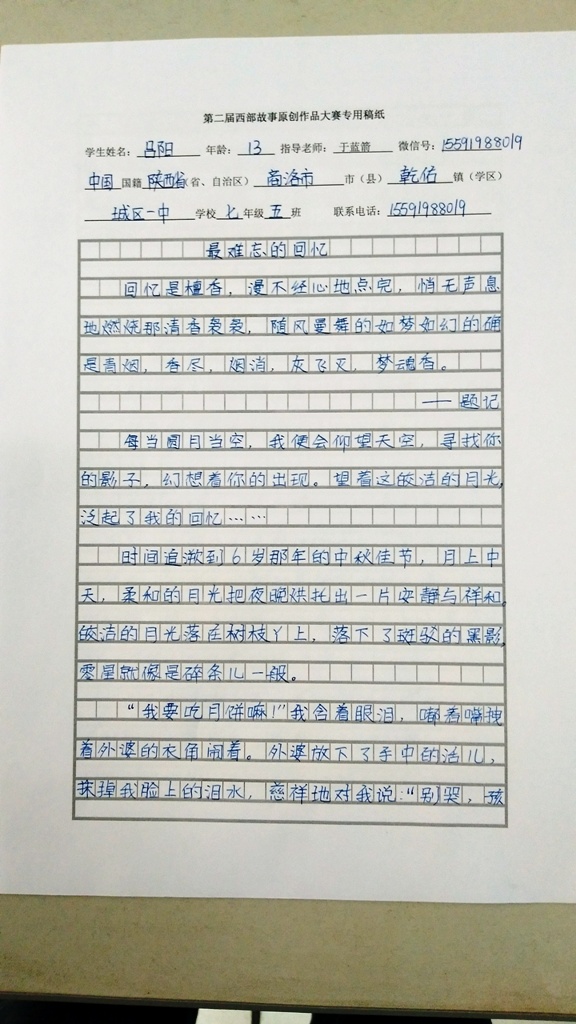 第二届西部故事原创作品大赛专用稿纸
学生姓名：吕阳 年龄：13 指导老师：于蓝箭 微信号：15591988019
中国国籍 陕西省（省、自治区） 商洛市 市（县） 乾佑 镇（学区）
城区一中 学校 七 年级 五 班 联系电话：15591988019
最难忘的回忆
回忆是檀香，漫不经心地点完，悄无声息
地燃烧那清香袅袅，随风曼舞的如梦如幻的确
是青烟，香尽，烟消，灰飞灭，梦魂香。
——题记
每当圆月当空，我便会仰望天空，寻找你
的影子，幻想着你的出现。望着这皎洁的月光，
泛起了我的回忆……
时间追溯到6岁那年的中秋佳节，月上中
天，柔和的月光把夜晚烘托出一片安静与祥和。
皎洁的月光落在树枝丫上，落下了斑驳的黑影，
零星就像是碎条儿一般。
“我要吃月饼嘛！”我含着眼泪，嘟着嘴拽
着外婆的衣角闹着。外婆放下了手中的活儿，
抹掉我脸上的泪水，慈祥地对我说：“别哭，孩